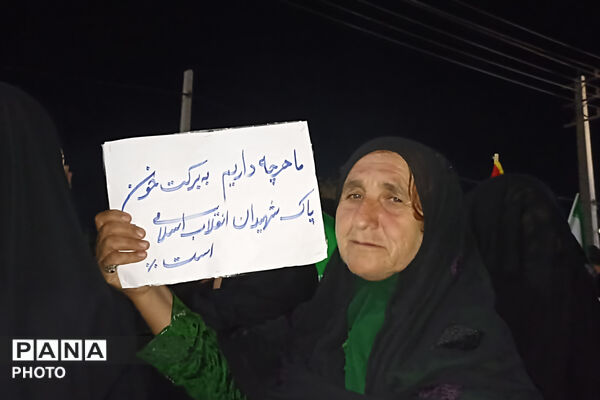 ما هرچه داریم به برکت خون
پاک شهیدان انقلاب اسلامی
است
PANA
PHOTO